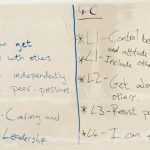 n get
with others
independently
peer pressure
Caring and
Leadership.
+ C
* L1 - Control be
and attitude
* L1 - Include othe
* L2 - Get alo
others.
* L3 - Resist p
* L4 - I can